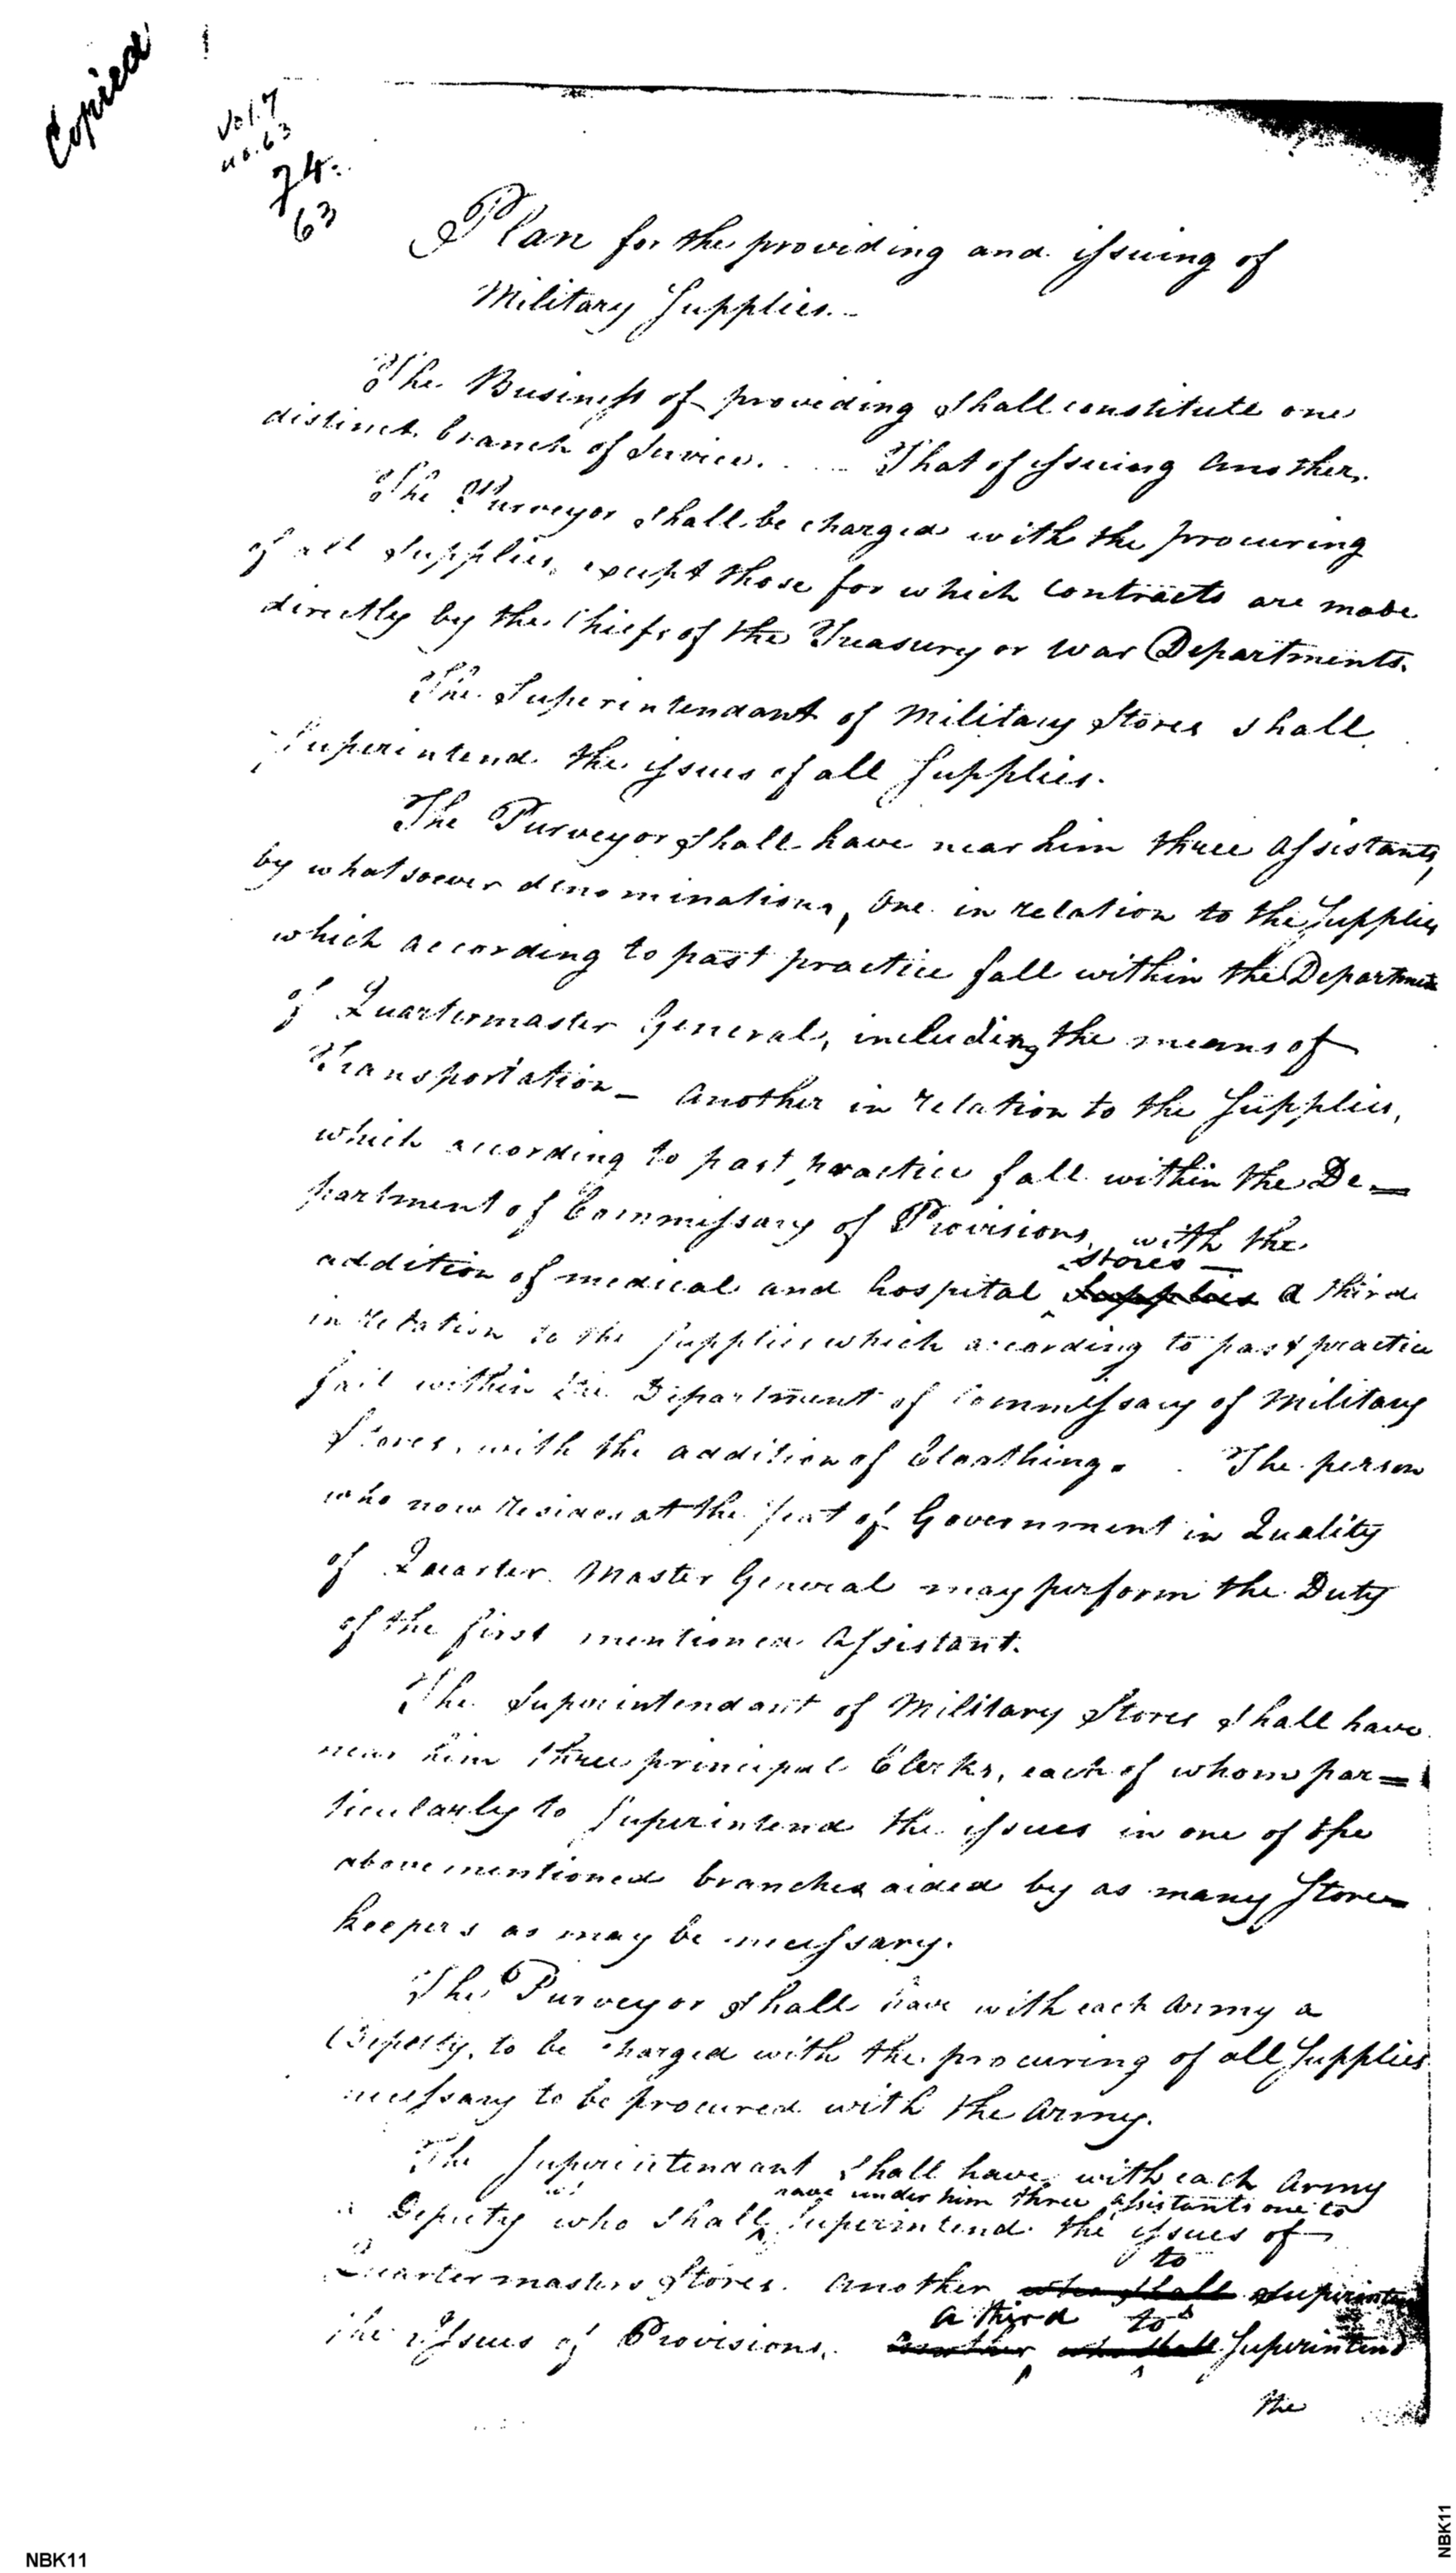 Copied
Vol. 7
no. 63
74.
63
Plan for the providing and issuing of
Military Supplies.-
The Business of providing shall constitute one
distinct branch of Service. . . — That of issuing Another.
The Purveyor shall be charged with the procuring
of all Supplies, except those for which Contracts are made
directly by the Chiefs of the Treasury or War Departments.
The Superintendant of Military Stores shall
Superintend the issues of all Supplies.
The Purveyor shall have near him three Assistants,
by whatsoever denominations, One in relation to the Supplies
which according to past practice fall within the Departmen
of Quartermaster General, including the means of
Transportation— Another in relation to the Supplies,
which according to past practice fall within the De—
partment of Commissary of Provisions, with the
stores —
addition of medical and hospital Supplies A third
in relation to the Supplies which according to past practice
fall within the Department of Commissary of Military
Stores, with the addition of Cloathing. . The person
who now resides at the Seat of Government in Quality
of Quarter Master General may perform the Duty
of the first mentioned Assistant.
The Superintendant of Military Stores shall have
near him three principal Clerks, each of whom par=
ticularly to Superintend the issues in one of the
abovementioned branches aided by as many Store=
keepers as may be necessary.
The Purveyor shall have with each Army a
Deputy, to be charged with the procuring of all Supplies
necessary to be procured with the Army.
The Superintendant shall have with each Army
have under him three assistants one to
a Deputy who shall Superintend the issues of
Quartermasters Stores. Another who shall to Superintend
the Issues of Provisions. Another a third who shall to Superintend
the
NBK11
NBK11